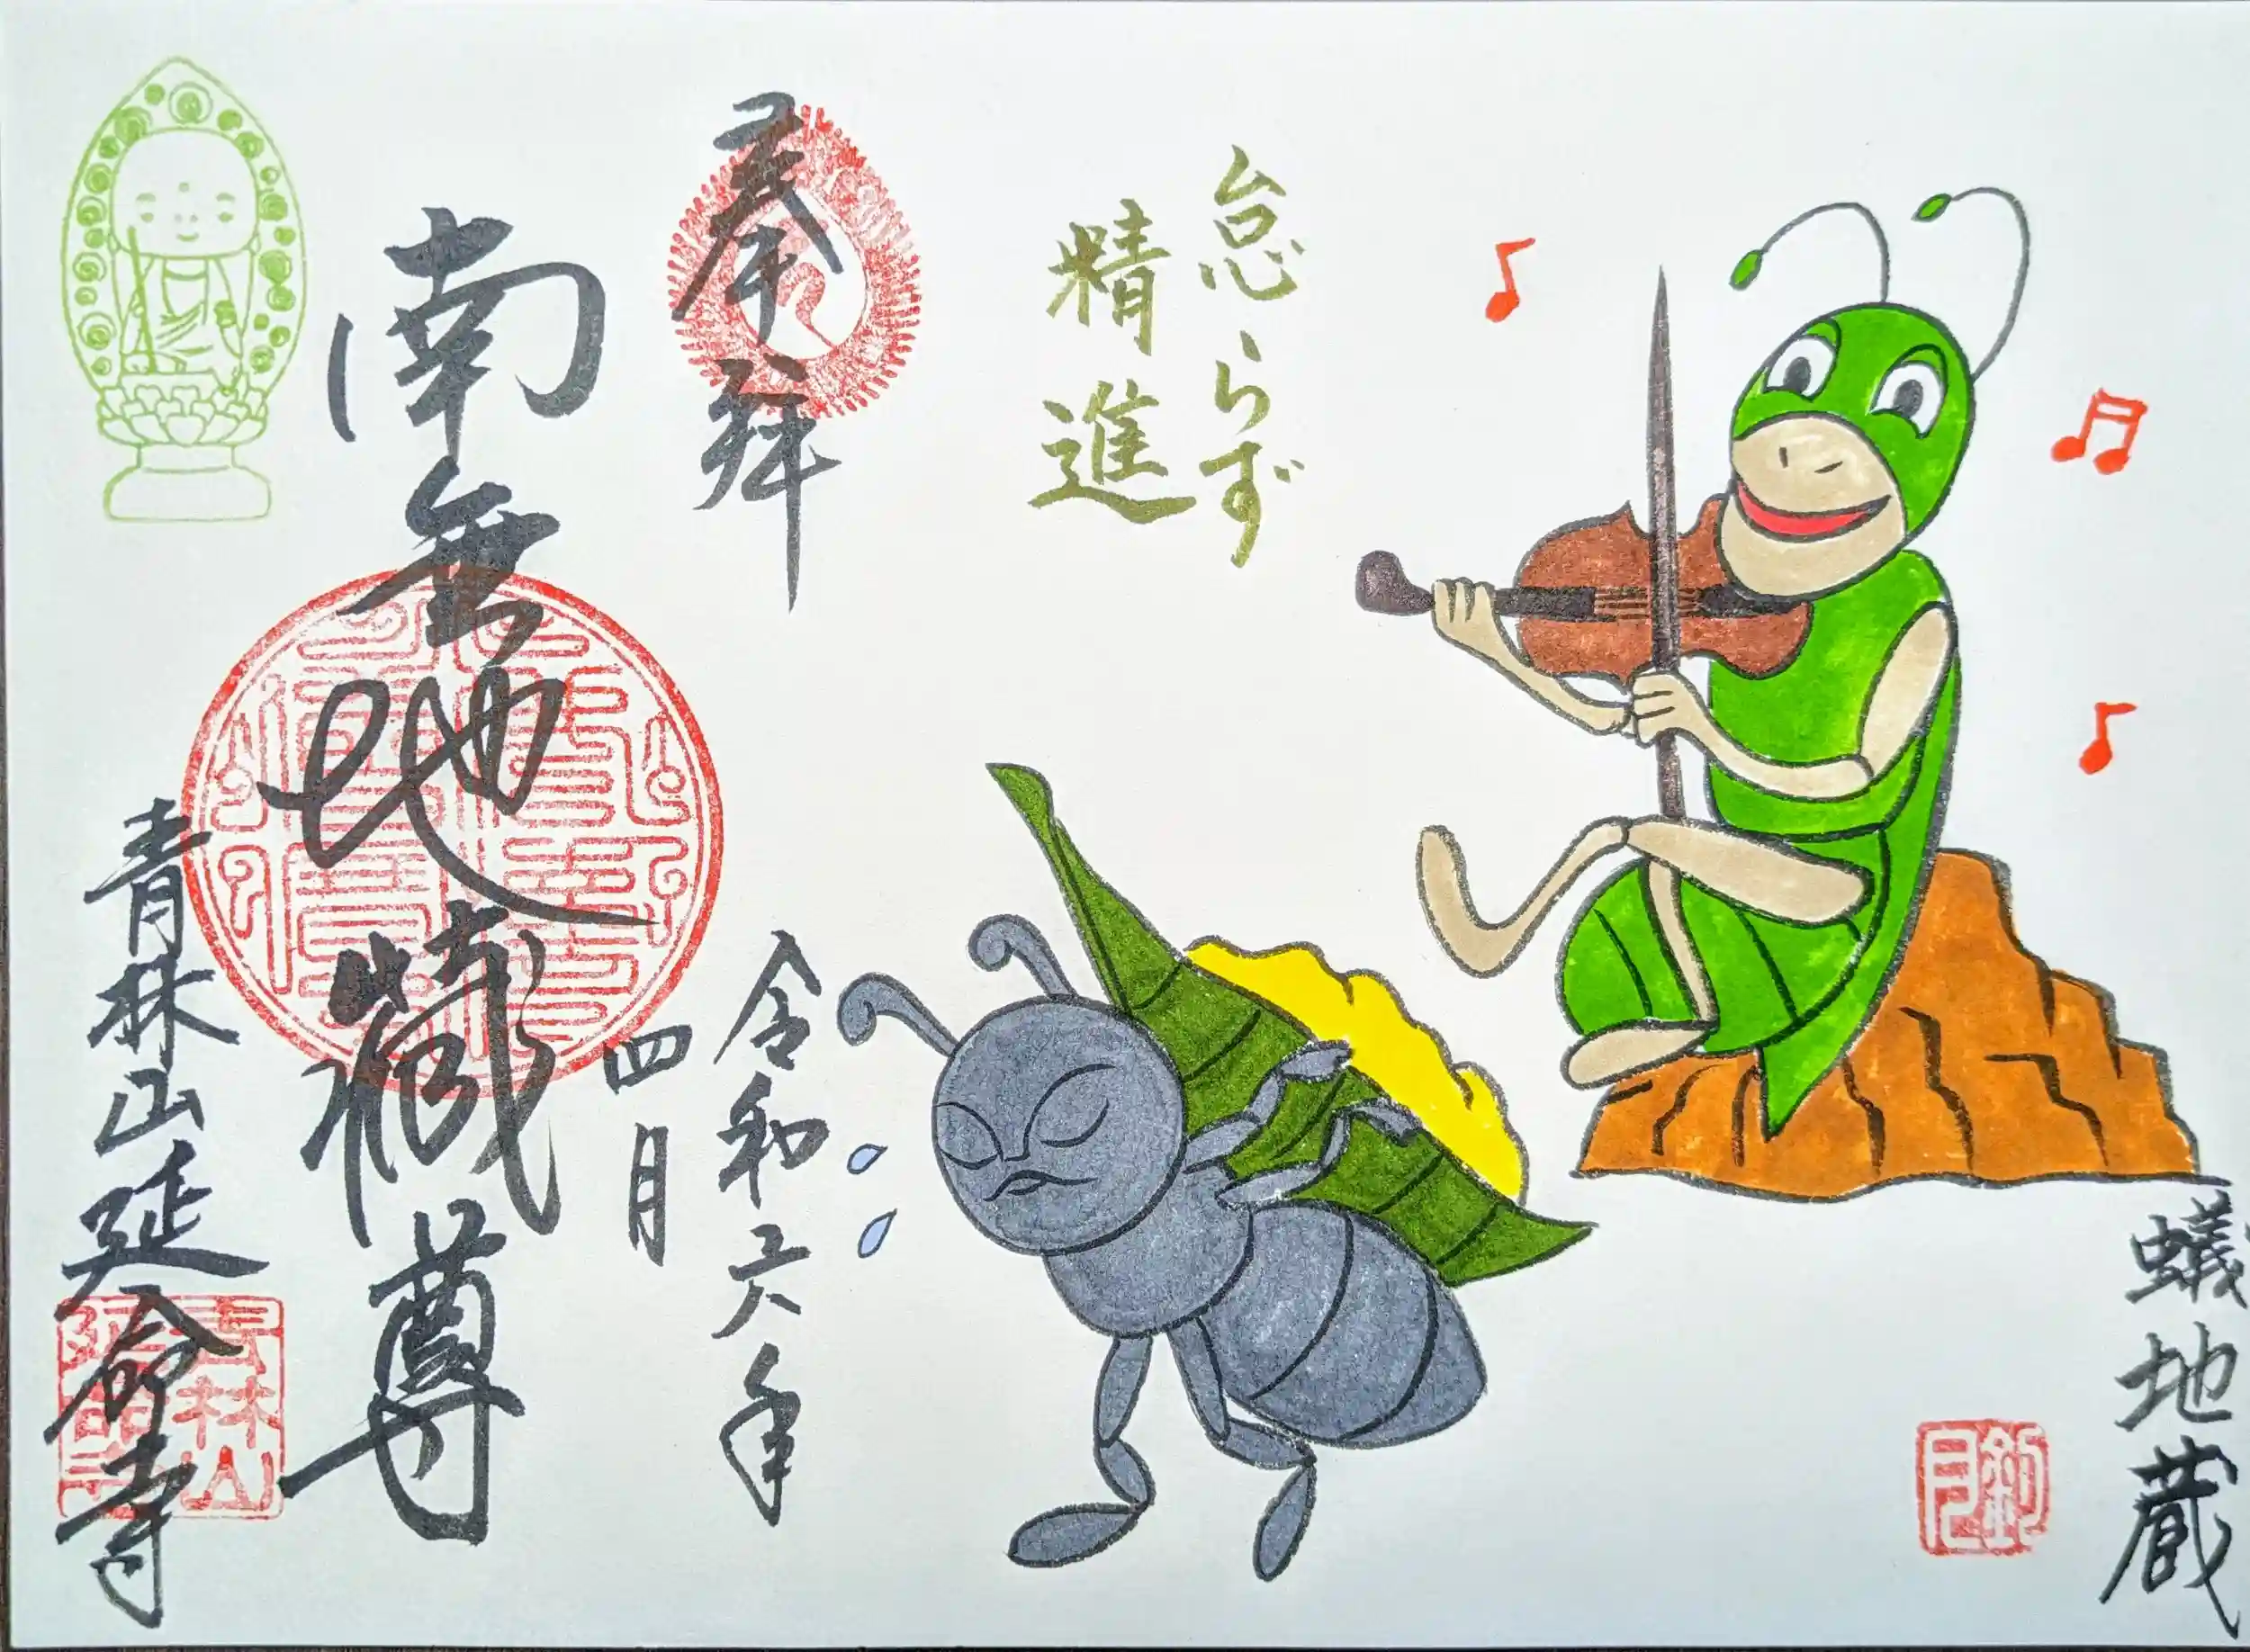 蟻地蔵
釣月
怠らず
精進
奉拝
令和六年
四月
南無地蔵尊
青林山延命寺
青林山
延命寺